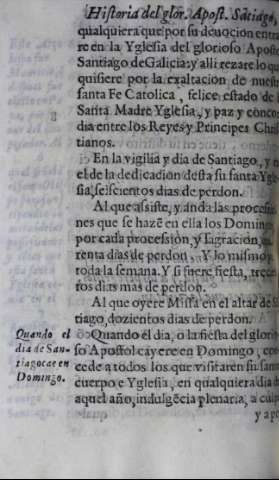 Historia del glor. Apost. Sãtiago,
qualquiera que por su deuocion entra
re en la Yglesia del glorioso Apost
Santiago de Galicia: y alli rezare lo q
quisiere por la exaltacion de nuest
santa Fe Catolica, felice estado de
Santa Madre Yglesia, y paz y concor
dia entre los Reyes y Principes Chris
tianos.
En la vigilia y dia de Santiago, y
el de la dedicacion desta su santa Ygle
sia, seiscientos dias de perdon.
Al que assiste, y anda las processi
nes que se hazē en ella los Domingo
por cada procession, y sagracion,
renta dias de perdon. Y lo mismo
toda la semana. Y si fuere fiesta, trecie
tos dias mas de perdon.
Al que oyere Missa en el altar de Sã
tiago, dozientos dias de perdon.
Quando el dia, o la fiesta del glorio
so Apostol cayere en Domingo, con
cede a todos los que visitaren su santo
cuerpo e Yglesia, en qualquiera dia d
aquel año, indulgēcia plenaria, a culp
y a pe
Quando el
dia de San-
tiago cae en
Domingo.